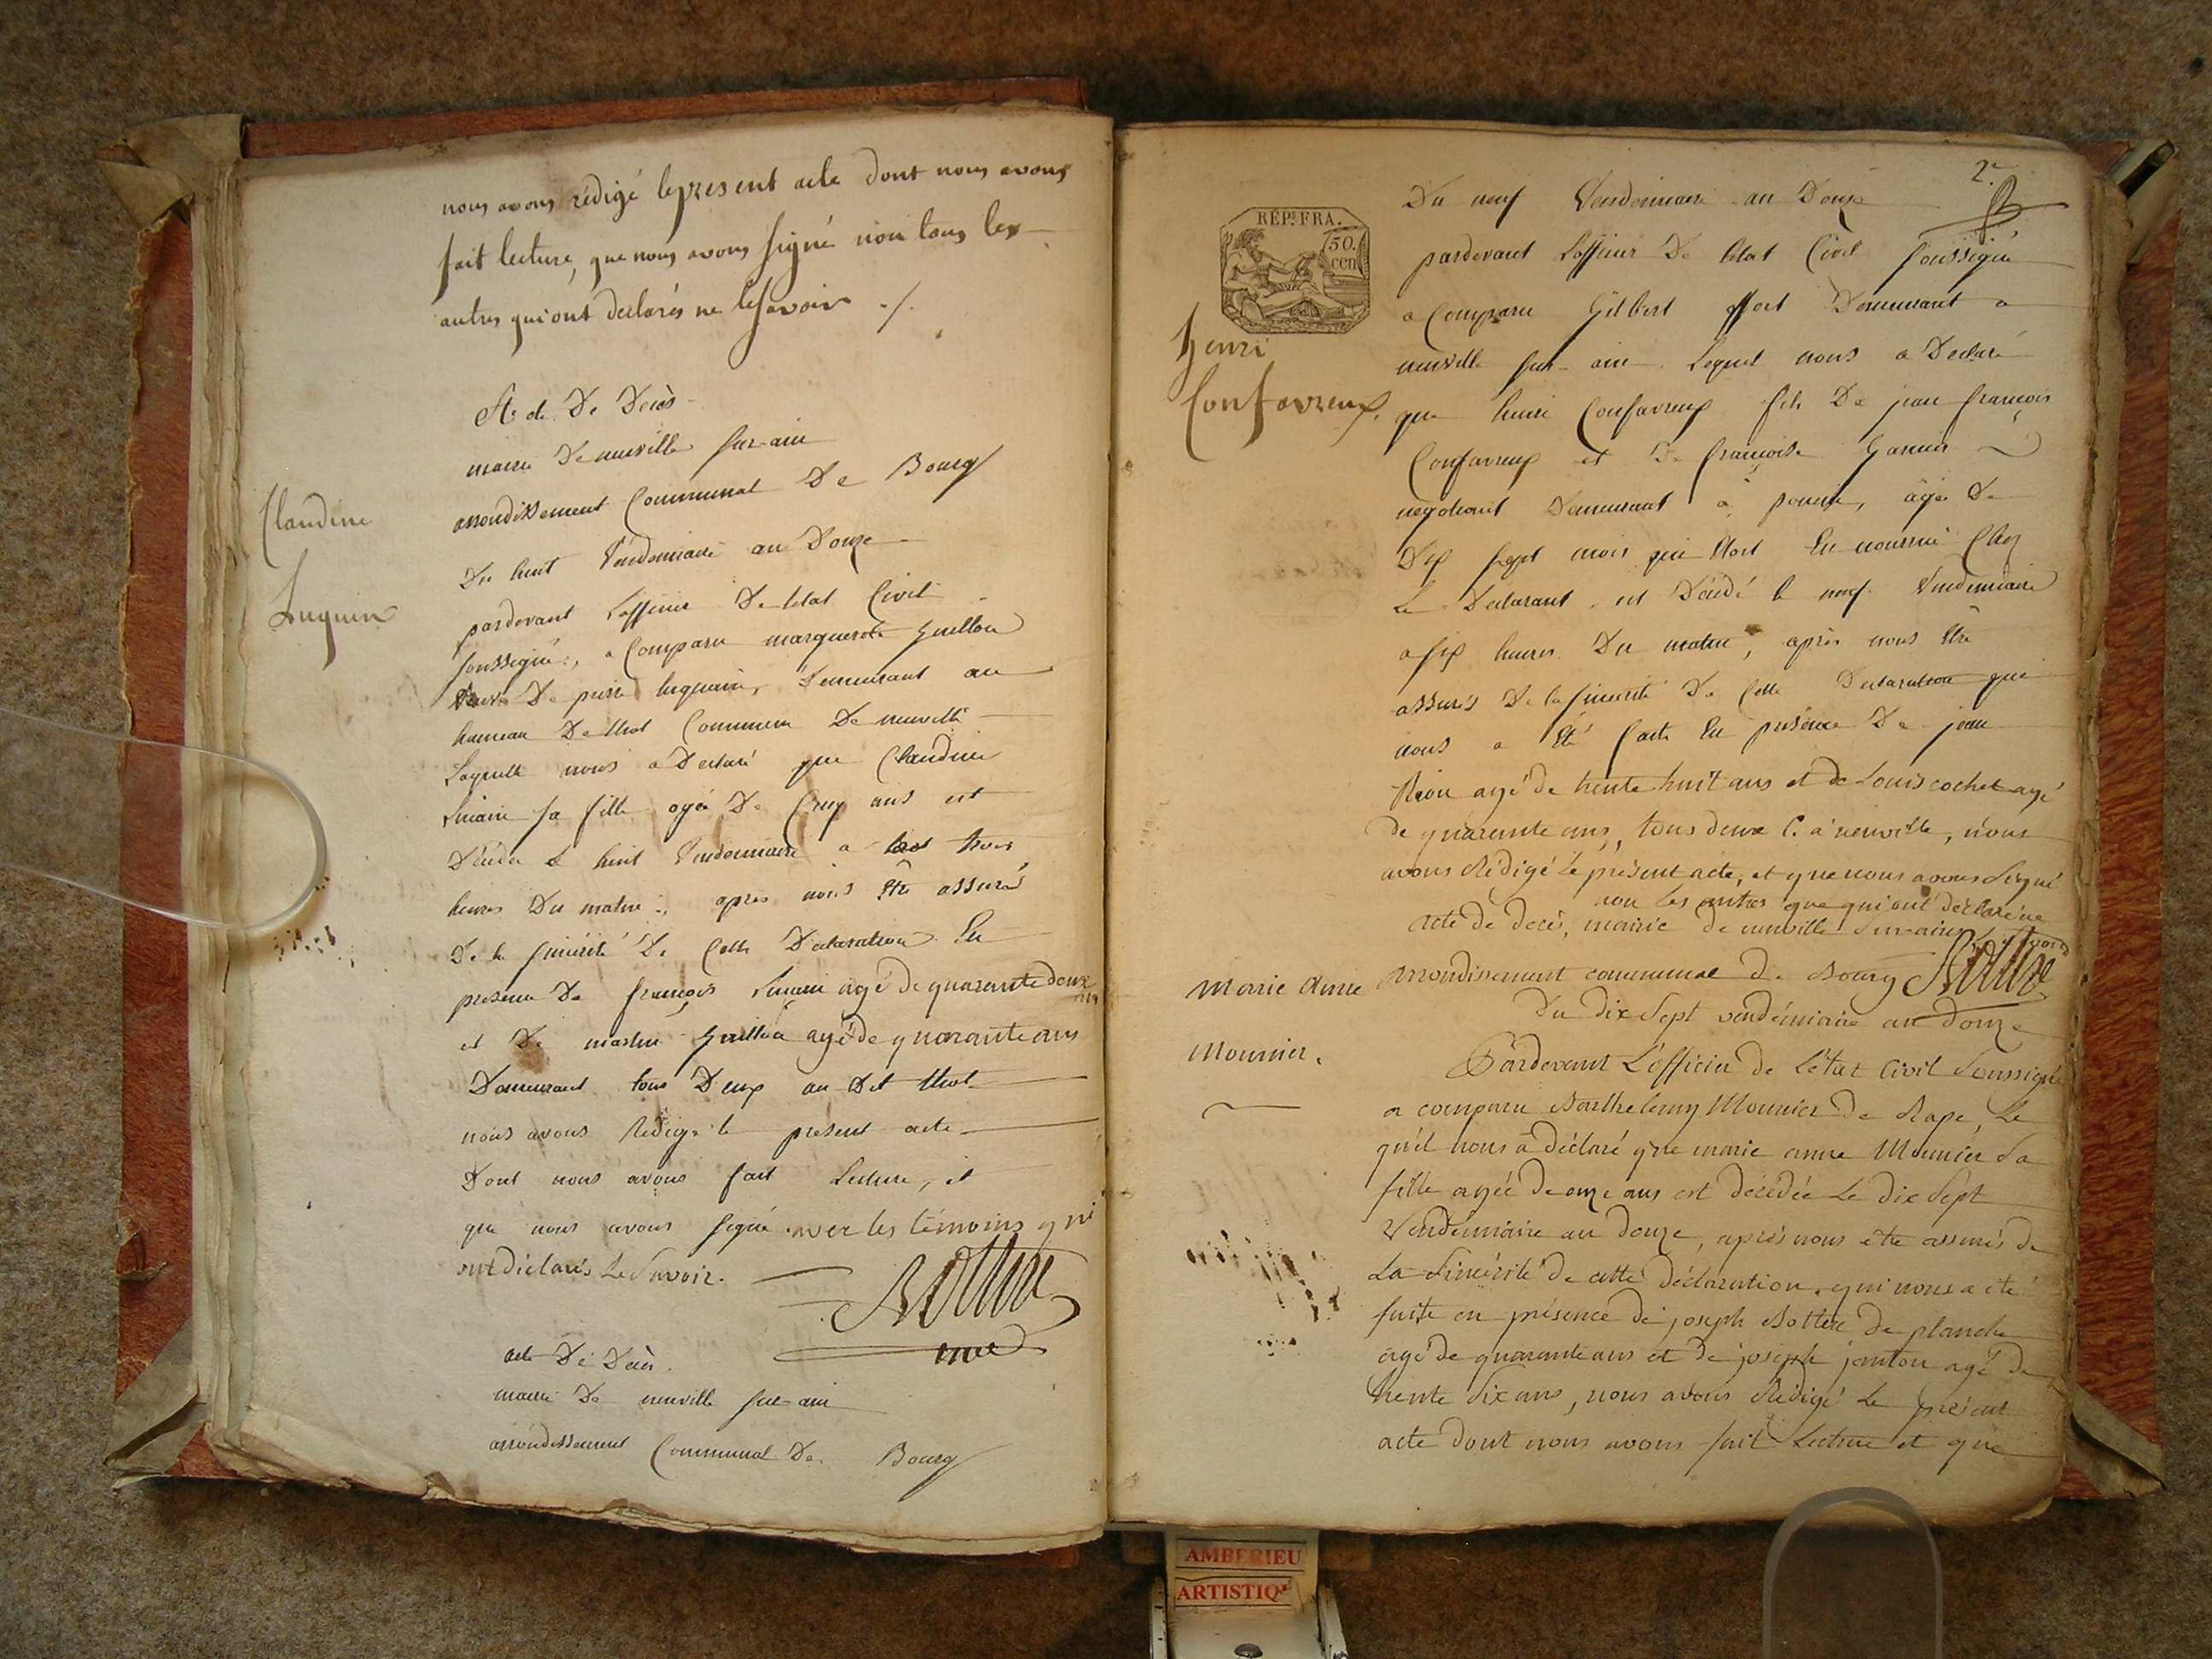 nous avons rédigé le present acte dont nous avons
fait lecture, que nous avons signé non tous les
autres qui ont declarés ne le savoir ./.
Acte De Décès
mairie De neuville sur-ain
arrondissement Communal De Bourg
Claudine
Luquin
Du huit Vendemiaire an Douze
pardevant L'officier De letat Civil
soussigné, a Comparu marguerite Guillon
veuve De pierre luquain, Demeurant au
hameau De thol Commune De neuville
Laquelle nous a Declaré que Claudine
sa fille agée De Cinq ans est
Décédée le huit Vendemiaire a trois
heures Du matin, apres nous être assuré
De la sincérité De Cette Declaration En
presence De françois agé de quarante deux ans
et De martin Guillon agé de quarante ans
Demeurant tous Deux au Dit thol
nous avons Redigé le present acte
Dont nous avons fait Lecture, et
que nous avons signé avec les témoins qui
ont déclarés Le Savoir.
acte De Décès.
mairie De neuville sur-ain
arrondissement Communal De Bourg
2e
RÉP. FRA.
50.
cen
Du neuf Vendemiaire an Douze
pardevant L'officier De letat Civil soussigné
a Comparu Gilbert Demeurant a
neuville sur-ain Lequel nous a Declaré
henri
Confavreux.
que henri Confavreux fils De jean françois
Confavreux et De françoise Garnier
negotiant Demeurant à, âgé De
Dix sept mois qui Etoit En nourrice Chez
Le Declarant est Décédé le neuf Vendemiaire
a six heures Du matin, après nous être
assurés De la sincerité De Cette Declaration que
nous a Eté faite En présence De jean
agé de trente huit ans et de Louis cochet agé
de quarante ans, tous deux C. a neuville, nous
avons Rédigé le présent acte, et que nous avons Signé
non les autres que qui ont déclaré ne le savoir
acte de decè, mairie de neuville Sur-ain
arrondissement communal de Bourg
Marie Anne
Mounier.
Du dix Sept vendémiaire an douze
Pardevant L'officier de L'état Civil Soussigné
a comparu Barthelemy Mounier de Rape, Le
quel nous a déclaré que marie anne Mounier Sa
fille agée de onze ans est décédée Le dix Sept
Vendémiaire an douze, après nous être assurés de
La Sincérité de cette déclaration, qui nous a été
faite en présence de joseph Bottex de planche
agé de quarante ans et de joseph janton agé de
trente Six ans, nous avons Rédigé Le présent
acte dont nous avons fait Lecture et que
AMBERIEU
ARTISTIQ